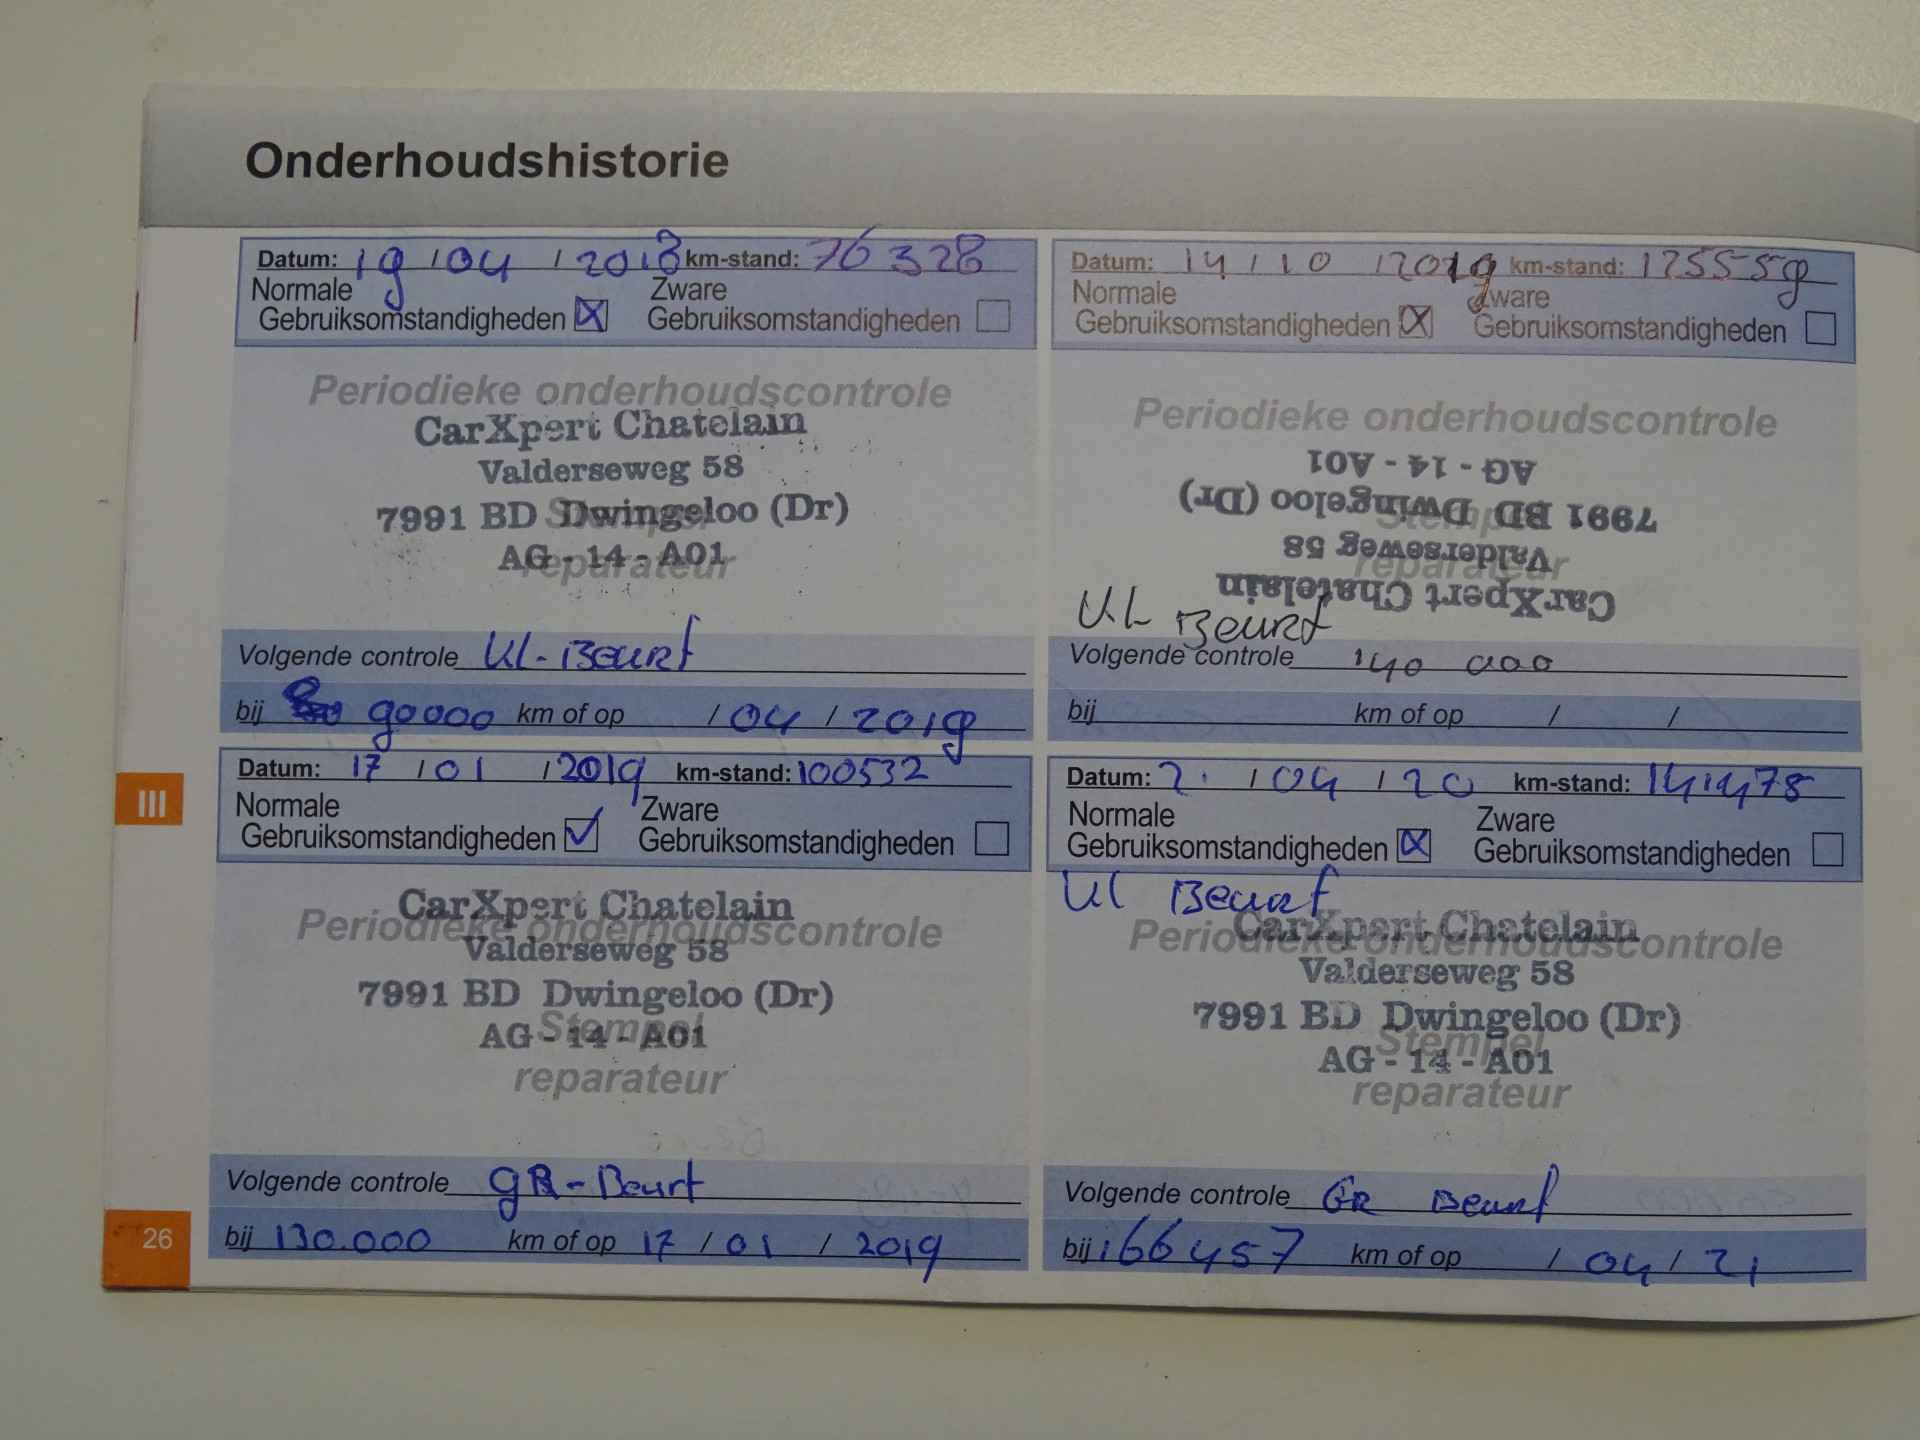 Onderhoudshistorie
Datum: 19 / 04 / 2018 km-stand: 76328
Normale Zware
Gebruiksomstandigheden Gebruiksomstandigheden
Periodieke onderhoudscontrole
CarXpert Chatelain
Valderseweg 58
7991 BD Dwingeloo (Dr)
Stempel
AG - 14 - A01
reparateur
Volgende controle Kl-Beurt
bij 90000 km of op / 04 / 2019
Datum: 17 / 01 / 2019 km-stand: 100532
Normale Zware
Gebruiksomstandigheden Gebruiksomstandigheden
CarXpert Chatelain
Periodieke onderhoudscontrole
Valderseweg 58
7991 BD Dwingeloo (Dr)
Stempel
AG - 14 - A01
reparateur
Volgende controle GR-Beurt
bij 130.000 km of op 17 / 01 / 2019
Datum: 14 / 10 / 2019 km-stand: 125559
Normale Zware
Gebruiksomstandigheden Gebruiksomstandigheden
Periodieke onderhoudscontrole
AG - 14 - A01
7991 BD Dwingeloo (Dr)
Stempel
Valderseweg 58
reparateur
CarXpert Chatelain
KL Beurt
Volgende controle 140 000
bij km of op / /
Datum: 2. / 04 / 20 km-stand: 141478
Normale Zware
Gebruiksomstandigheden Gebruiksomstandigheden
Kl Beurt
CarXpert Chatelain
Periodieke onderhoudscontrole
Valderseweg 58
7991 BD Dwingeloo (Dr)
Stempel
AG - 14 - A01
reparateur
Volgende controle GR Beurt
bij 166457 km of op / 04 / 21
III
26